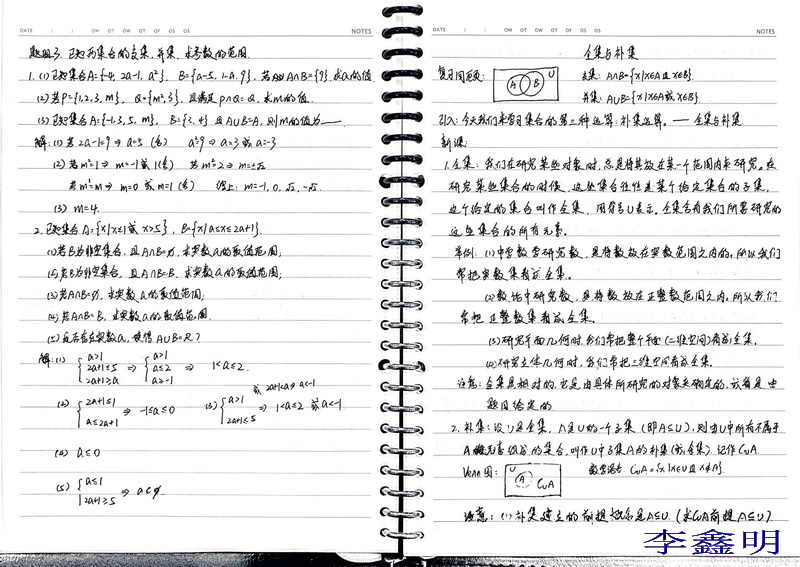 DATE / / OM OT OF OS OS NOTES
题组3. 已知两集合的交集、并集,求参数的范围.
1.(1)已知集合A={-4, 2a-1, a²}, B={a-5, 1-a, 9}, 若A∩B={9}. 求a的值
(2)若P={1,2,3,m}, Q={m²,3}, 且满足P∩Q=Q, 求m的值.
(3)已知集合A={-1,3,5,m}, B={3,4} 且A∪B=A, 则m的值为___.
解:(1)若2a-1=9⇒a=5 (舍) a²=9⇒a=3或a=-3
(2)若m²=1⇒m=-1或1(舍) 若m²=2⇒m=±√2
若m²=m⇒m=0或m=1(舍) 综上: m=-1, 0, √2, -√2
(3) m=4.
2. 已知集合A={x|x≤1或x>5}, B={x|a≤x≤2a+1}.
(1)若B为非空集合, 且A∩B=∅, 求实数a的取值范围;
(2)若B为非空集合, 且A∩B=B, 求实数a的取值范围;
(3)若A∩B=∅, 求实数a的取值范围;
(4)若A∩B=B, 求实数a的取值范围.
(5)是否存在实数a, 使得A∪B=R?
解:(1) { a>1 2a+1≤5 2a+1≥a ⇒ { a>1 a≤2 a≥-1 ⇒ 1<a≤2.
或2a+1<a⇒a<-1
(2) { 2a+1≤1 a≤2a+1 ⇒ -1≤a≤0 (3) { a>1 2a+1≤5 ⇒ 1<a≤2 或a<-1.
(4) a≤0
(5) { a≤1 2a+1≥5 ⇒ a∈∅.
DATE / / OM OT OF OS OS NOTES
全集与补集
复习回顾: A B U 交集: A∩B={x|x∈A且x∈B}.
并集: A∪B={x|x∈A或x∈B}.
引入: 今天我们来学习集合的第三种运算: 补集运算. —— 全集与补集
新课:
1.全集: 我们在研究某些对象时, 总是将其放在某一个范围内来研究. 在
研究某些集合的时候, 这些集合往往是某个给定集合的子集,
这个给定的集合叫作全集, 用符号U表示. 全集含有我们所要研究的
这些集合的所有元素.
举例: (1)中学数学研究数, 是将数放在实数范围之内的. 所以我们
常把实数集看成全集.
(2)数论中研究数, 是将数放在正整数范围之内, 所以我们
常把正整数集看成全集.
(3)研究平面几何时, 我们常把整个平面(二维空间)看成全集.
(4)研究立体几何时, 我们常把三维空间看成全集.
注意: 全集是相对的. 它是由具体所研究的对象来确定的, 该者是由
题目给定的
2. 补集: 设U是全集, A是U的一个子集 (即A⊆U), 则由U中所有不属于
A的元素组成的集合, 叫作U中子集A的补集(或余集). 记作∁UA.
Venn图: U A ∁UA 数学语言: ∁UA={x|x∈U且x∉A}.
注意: (1)补集建立的前提概念是A⊆U. (求∁UA前提A⊆U)
李鑫明